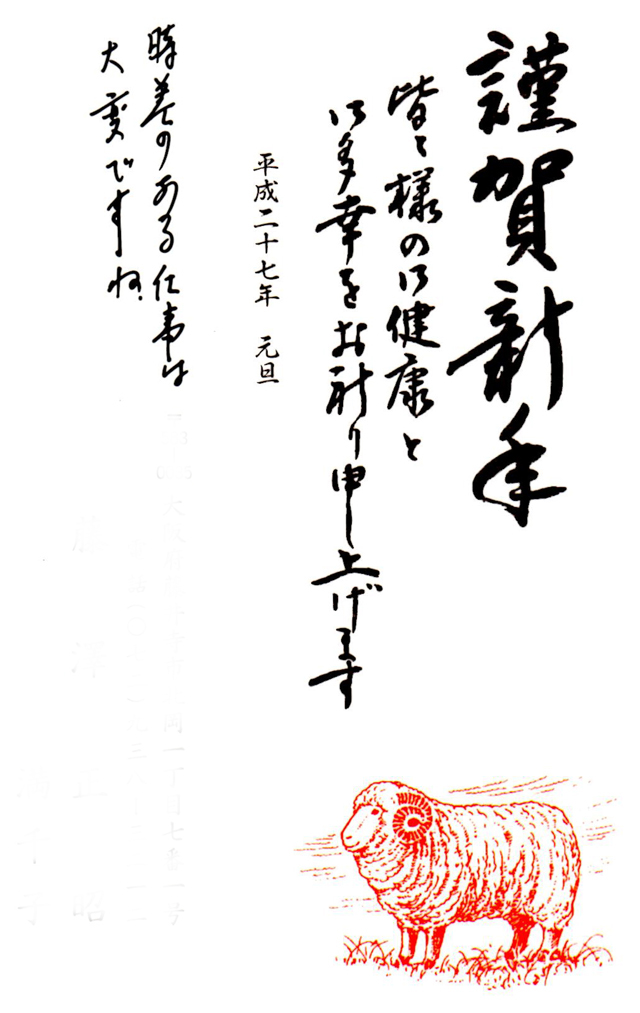 謹賀新年
皆々様のご健康と
ご多幸をお祈り申し上げます
平成二十七年　元旦
時差のある仕事は
大変ですね。